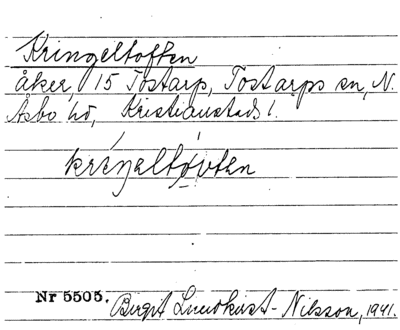 Kringeltoften
åker, 15 Tostarp, Tostarps sn, N.
Åsbo hd, Kristianstads l.
kriŋeltɔvten
Nr 5505. Birgit Lundkvist-Nilsson, 1941.